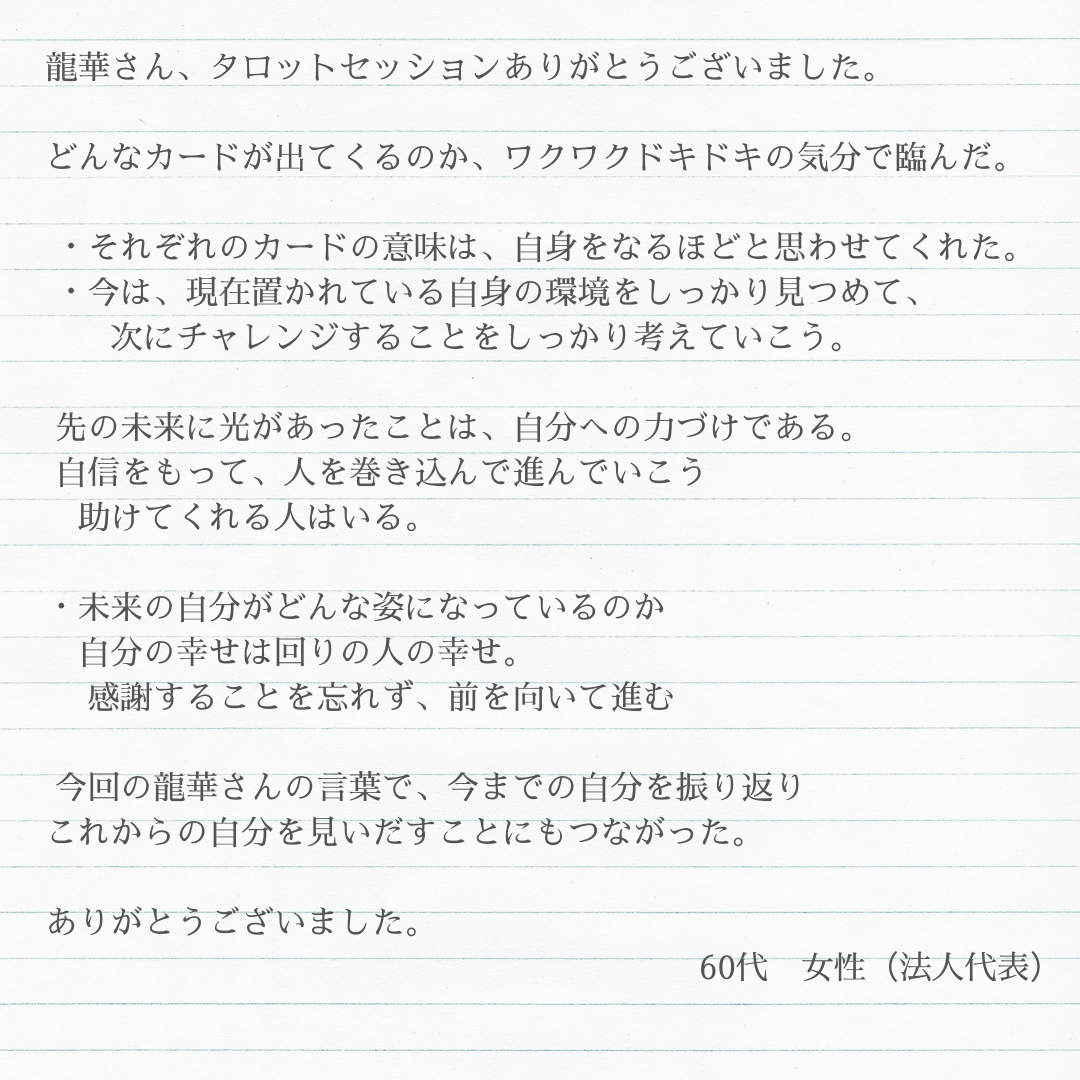 龍華さん、タロットセッションありがとうございました。
どんなカードが出てくるのか、ワクワクドキドキの気分で臨んだ。
・それぞれのカードの意味は、自身をなるほどと思わせてくれた。
・今は、現在置かれている自身の環境をしっかり見つめて、
次にチャレンジすることをしっかり考えていこう。
先の未来に光があったことは、自分への力づけである。
自信をもって、人を巻き込んで進んでいこう
助けてくれる人はいる。
・未来の自分がどんな姿になっているのか
自分の幸せは回りの人の幸せ。
感謝することを忘れず、前を向いて進む
今回の龍華さんの言葉で、今までの自分を振り返り
これからの自分を見いだすことにもつながった。
ありがとうございました。
60代　女性（法人代表）